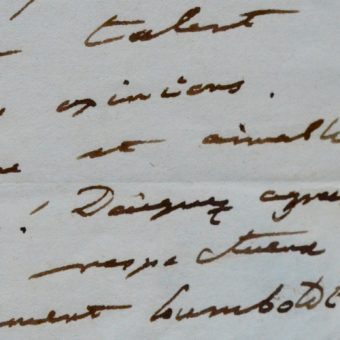 talent
opinions.
et aimab
! Daignez agre
respectueux
ment Humboldt